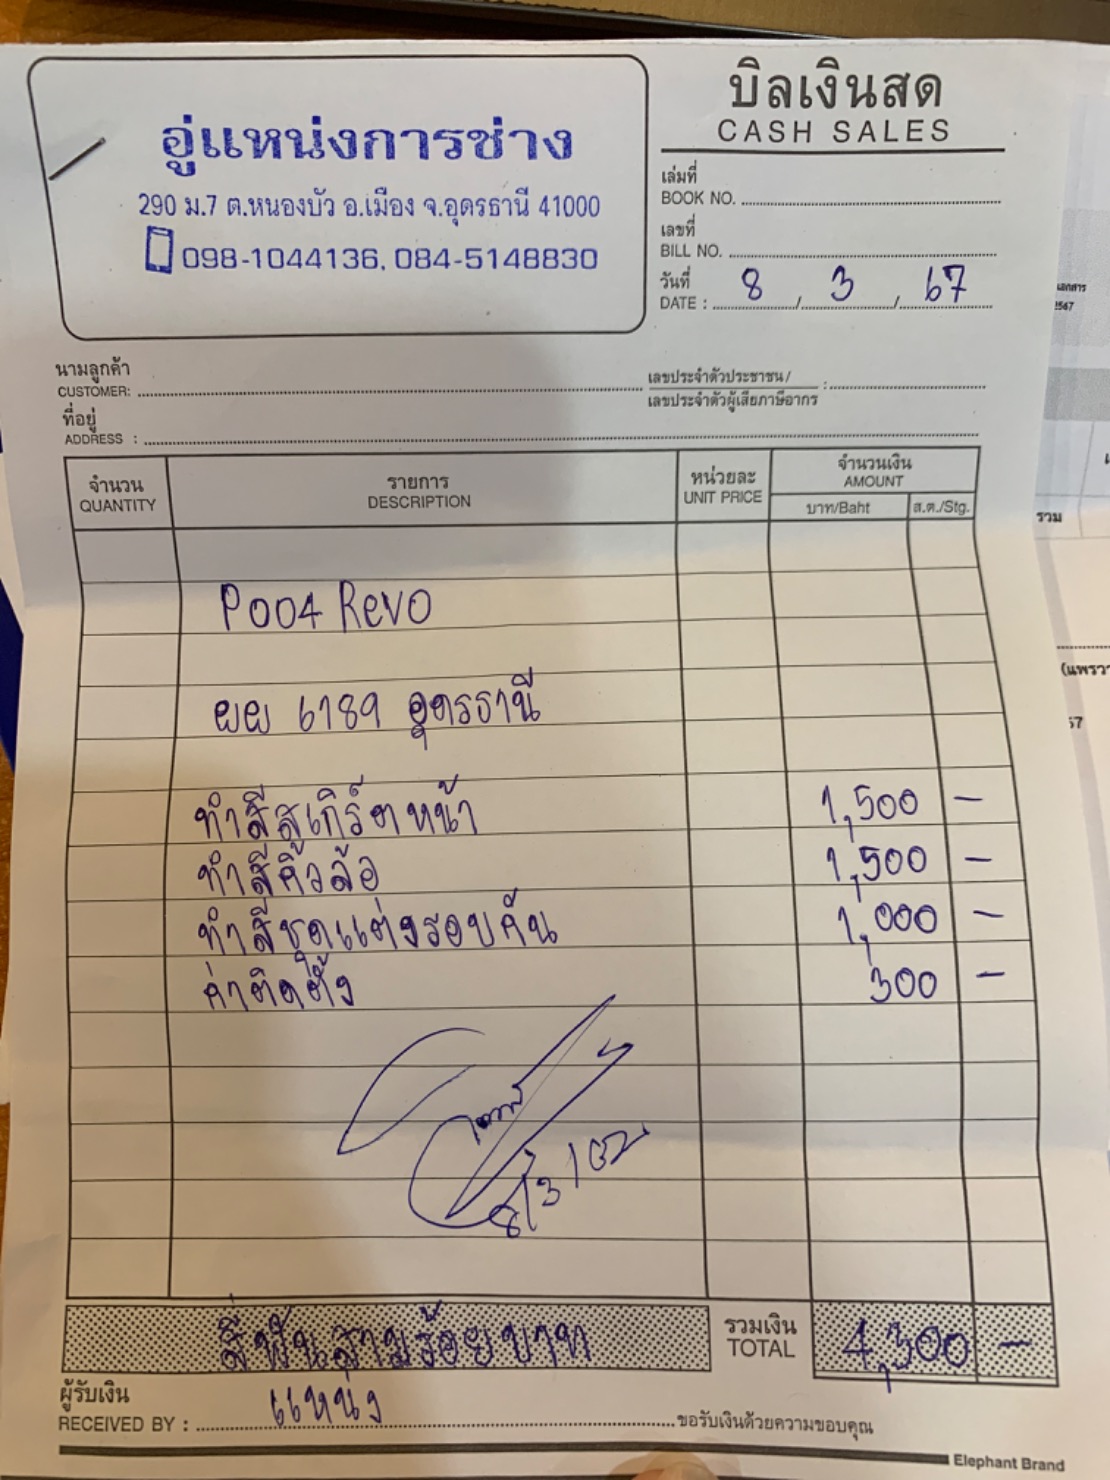 อู่แหน่งการช่าง
290 ม.7 ต.หนองบัว อ.เมือง จ.อุดรธานี 41000
098-1044136, 084-5148830
บิลเงินสด
CASH SALES
เล่มที่
BOOK NO.
เลขที่
BILL NO.
วันที่
DATE : 8 / 3 / 67
เอกสาร
2567
นามลูกค้า
CUSTOMER:
เลขประจำตัวประชาชน /
เลขประจำตัวผู้เสียภาษีอากร :
ที่อยู่
ADDRESS :
จำนวน รายการ หน่วยละ จำนวนเงิน
QUANTITY DESCRIPTION UNIT PRICE AMOUNT
บาท/Baht ส.ต./Stg.
รวม
P004 Revo
ผผ 6789 อุดรธานี
(แพรวา
57
ทำสีสเกิร์ตหน้า 1,500 -
ทำสีคิ้วล้อ 1,500 -
ทำสีชุดแต่งรอบคัน 1,000 -
ค่าติดตั้ง 300 -
สี่พันสามร้อยบาท
รวมเงิน
TOTAL
4,300 -
ผู้รับเงิน
RECEIVED BY : แหน่ง
ขอรับเงินด้วยความขอบคุณ
Elephant Brand